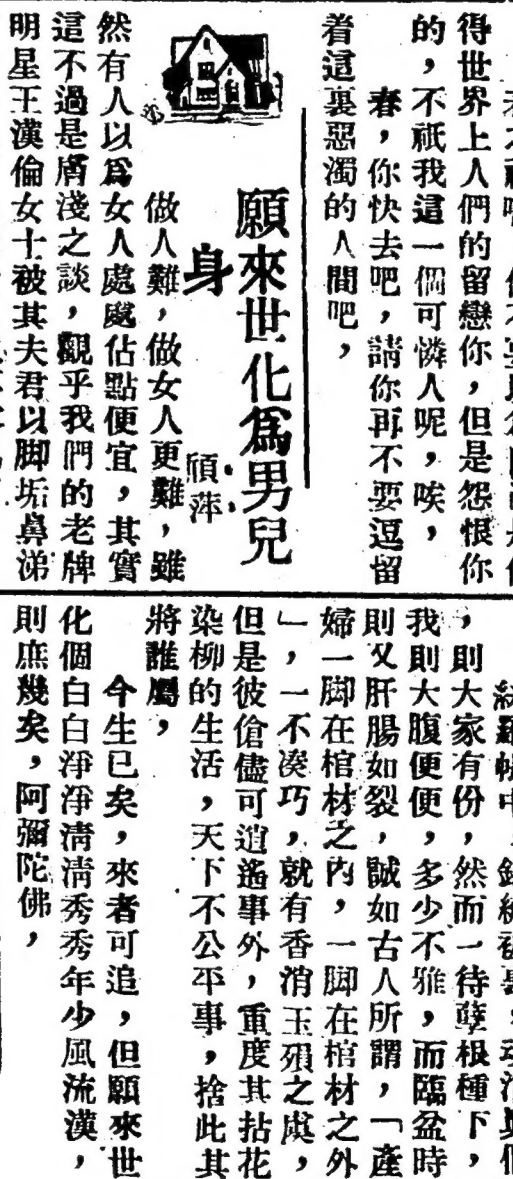 得世界上人們的留戀你，但是怨恨你
的，不祇我這一個可憐人呢，唉，
春，你快去吧，請你再不要逗留
着這裏惡濁的人間吧，
願來世化爲男兒
身
頎萍
做人難，做女人更難，雖
然有人以爲女人處處佔點便宜，其實
這不過是膚淺之談，觀乎我們的老牌
明星王漢倫女士被其夫君以脚垢鼻涕
，則大家有份，然而一待孽根種下，
我則大腹便便，多少不雅，而臨盆時
則又肝腸如裂，誠如古人所謂，「產
婦一脚在棺材之內，一脚在棺材之外
」，一不湊巧，就有香消玉殞之虞，
但是彼傖儘可逍遙事外，重度其拈花
染柳的生活，天下不公平事，捨此其
將誰屬，
今生已矣，來者可追，但願來世
化個白白淨淨清清秀秀年少風流漢，
則庶幾矣，阿彌陀佛，